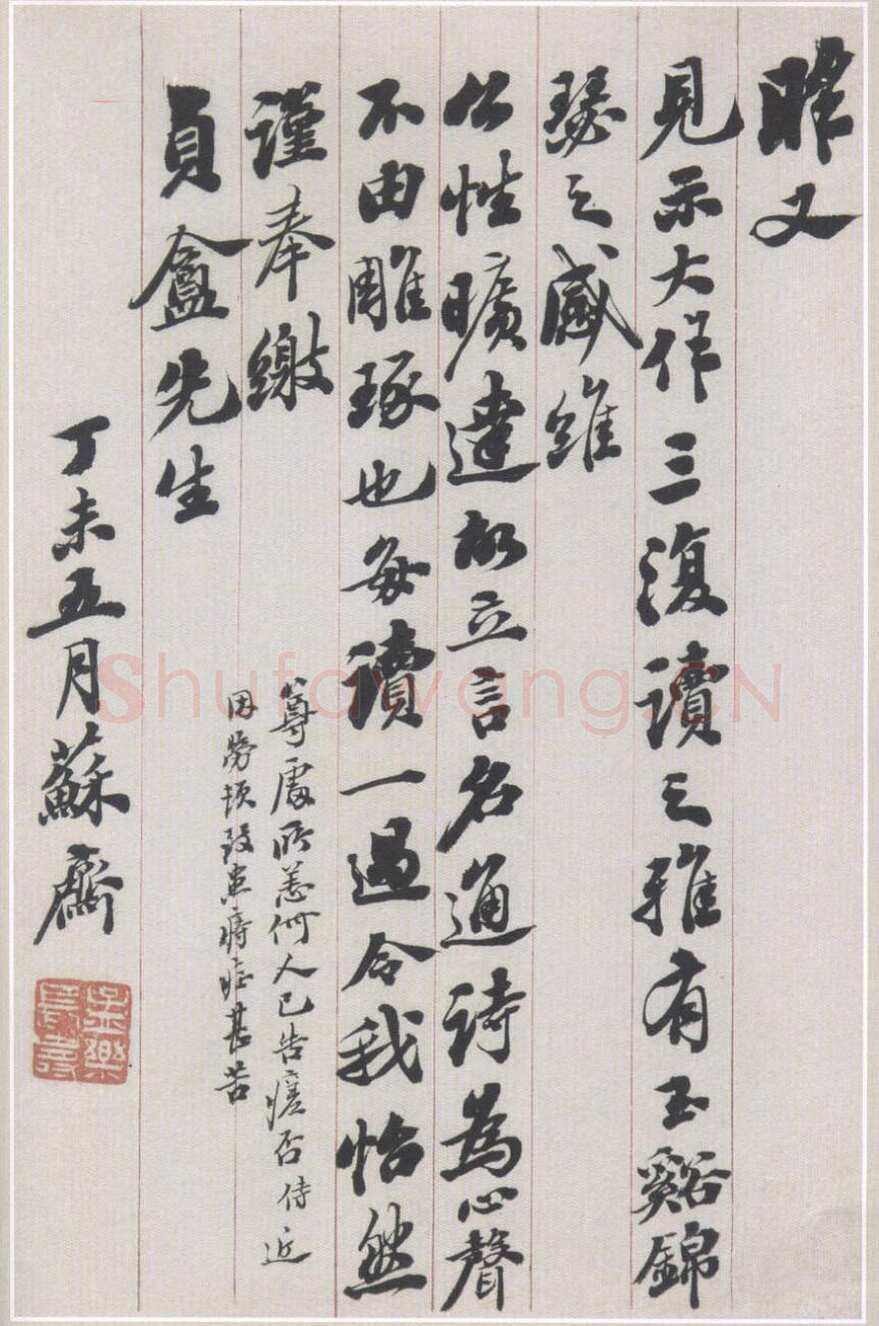 昨又
見示大作三復讀之雅有玉谿錦
瑟之感維
公性曠達故立言名通詩為心聲
不由雕琢也每讀一過令我怡然
謹奉繳
尊處所恙何人已告瘥否侍近
因勞頓致患痔症甚苦
貞盦先生
丁未五月蘇齋
孟樂長壽
Shufawang.CN